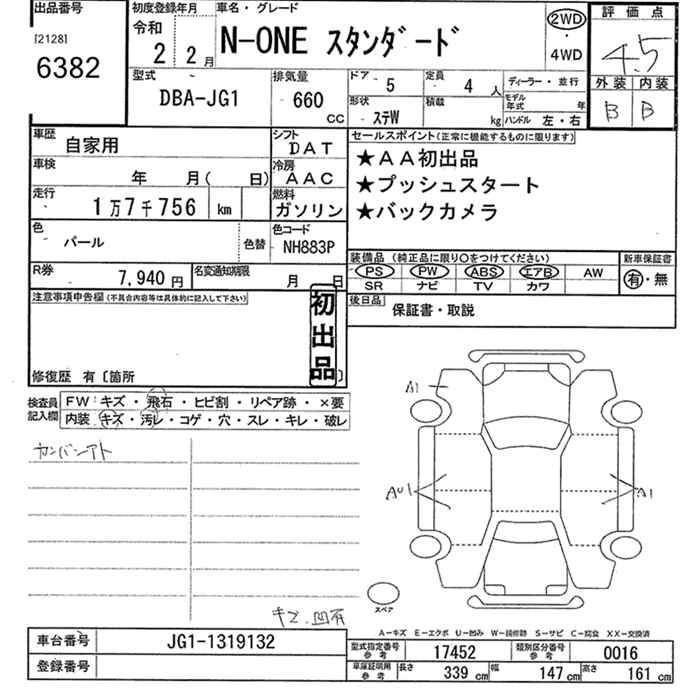 出品番号 初度登録年月 車名・グレード 評価点
[2128] 令和 2WD
6382 2 2月 N-ONE スタンダード ・ 4WD 4.5
型式 排気量 ドア 5 定員 4人 ディーラー・並行 外装 内装
DBA-JG1 660 CC 形状 ステW 積載 kg モデル年式 年 ハンドル 左・右 B B
車歴 自家用 シフト DAT セールスポイント(正常に機能するものに限ります)
車検 年 月( 日) 冷房 AAC ★AA初出品
走行 1万7千756 km 燃料 ガソリン ★プッシュスタート
★バックカメラ
色 パール 色替 色コード NH883P
装備品(純正品に限り○をつけてください) 新車保証書
R券 7,940円 名変通知期限 月 日 PS PW ABS エアB AW 有・無
SR ナビ TV カワ
注意事項申告欄(不具合内容等は具体的に記入して下さい) 初出品 後日品 保証書・取説
修復歴 有〔箇所 〕
検査員記入欄 FW:キズ・飛石・ヒビ割・リペア跡・×要
内装:キズ・汚レ・コゲ・穴・スレ・キレ・破レ
カンバンアト
A1
A1
キズ、凹有
スペア
A-キズ E-エクボ U-凹み W-補修跡 S-サビ C-腐食 XX-交換済
車台番号 JG1-1319132 型式指定番号参考 17452 類別区分番号参考 0016
登録番号 車庫証明用参考 長さ 339cm 幅 147cm 高さ 161cm